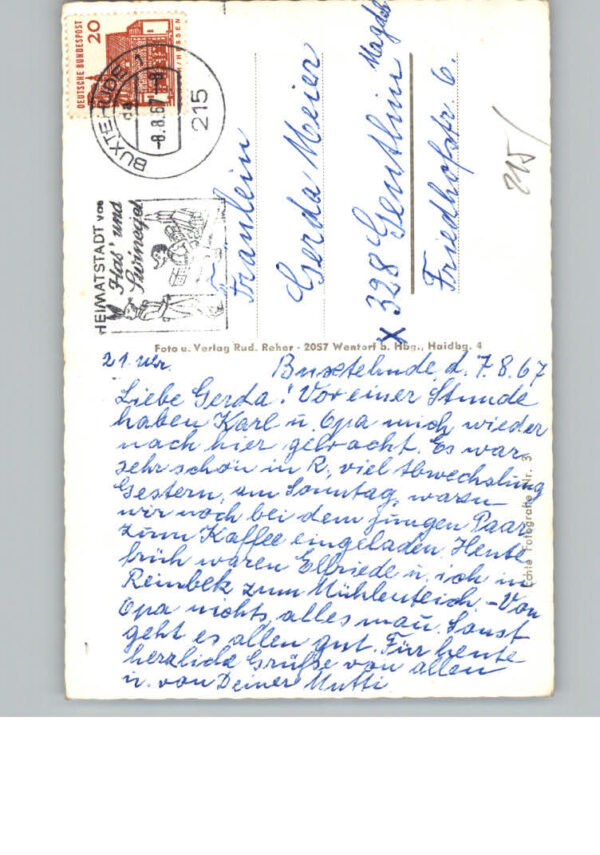 DEUTSCHE BUNDESPOST
20
HESSEN
BUXTEHUDE 1
da
-8.8.67
215
HEIMATSTADT von
Has' und
Swinegel
Fräulein
Gerda Meier
X 328 Genthin
Magdeb
Friedhofstr. 6.
215/
Foto u. Verlag Rud. Reher - 2057 Wentorf b. Hbg., Haidbg. 4
Echte Fotografie Nr. 3
21 Uhr.
Buxtehude d. 7.8.67
Liebe Gerda! Vor einer Stunde
haben Karl u. Opa mich wieder
nach hier gebracht. Es war
sehr schön in R., viel Abwechslung
Gestern, am Sonntag, waren
wir noch bei dem jungen Paar
zum Kaffee eingeladen. Heute
früh waren Elfriede u. ich in
Reinbek zum Mühlenteich. - Von
Opa nichts, alles mau. Sonst
geht es allen gut. Für heute
herzliche Grüße von allen
u. von Deiner Mutti